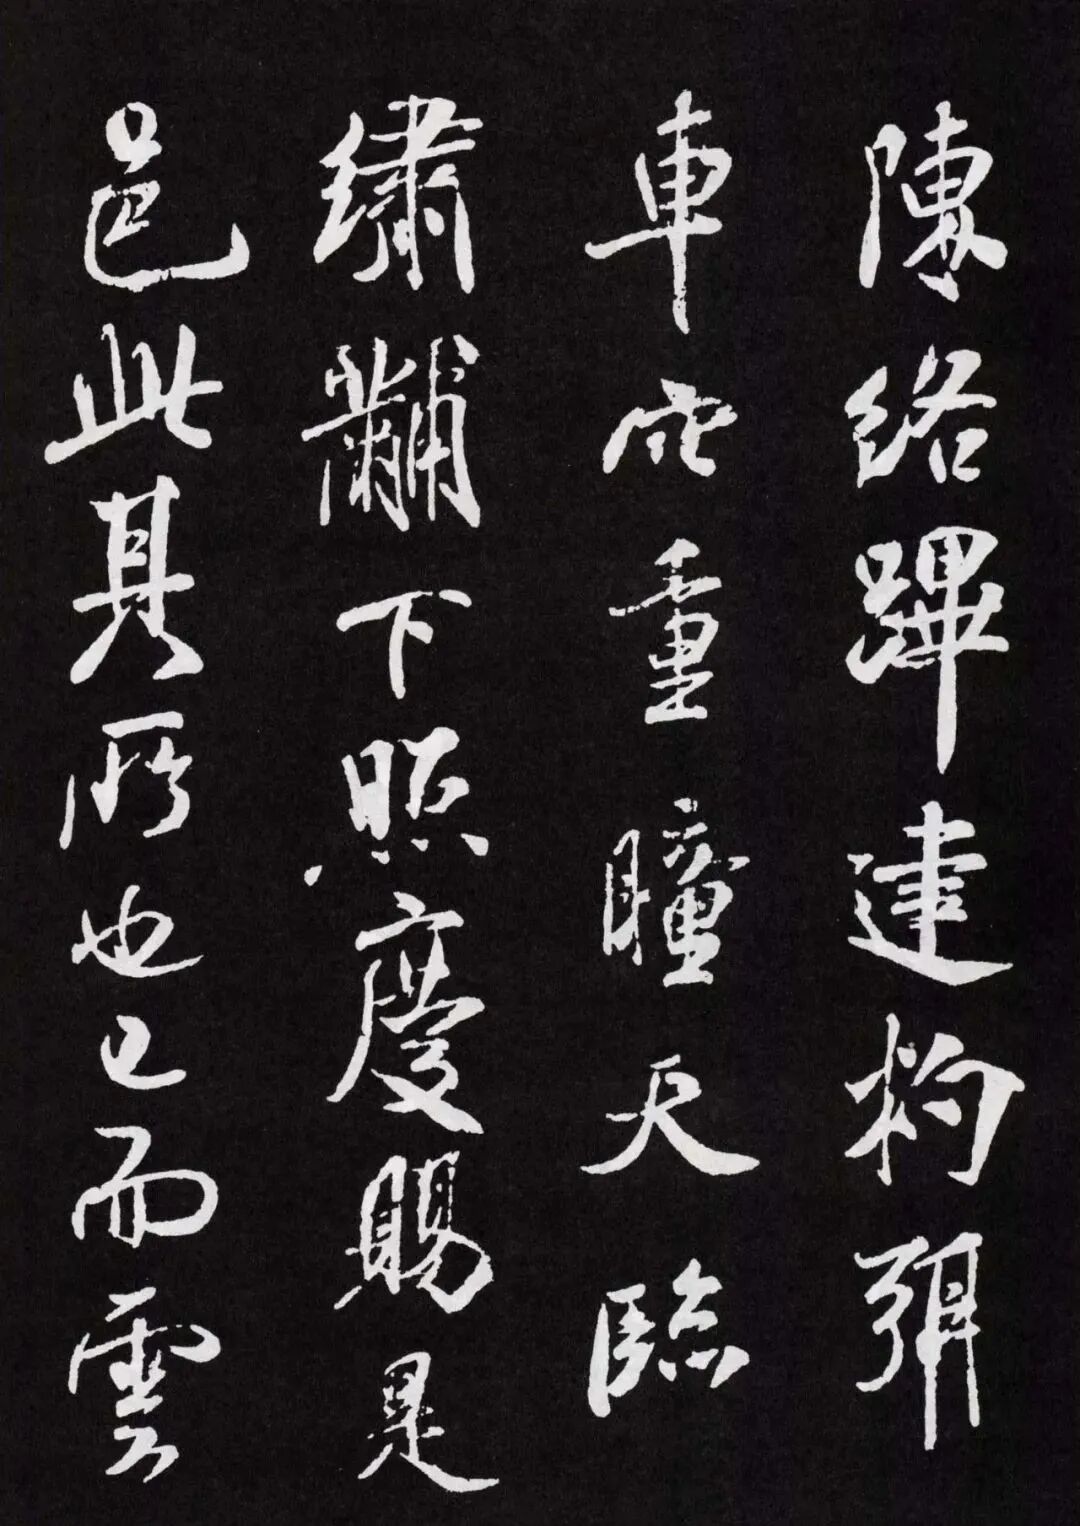 陳絡蹕建杓弭
車重瞳天臨
繡黼下照慶賜是
邑此其所也已而雲